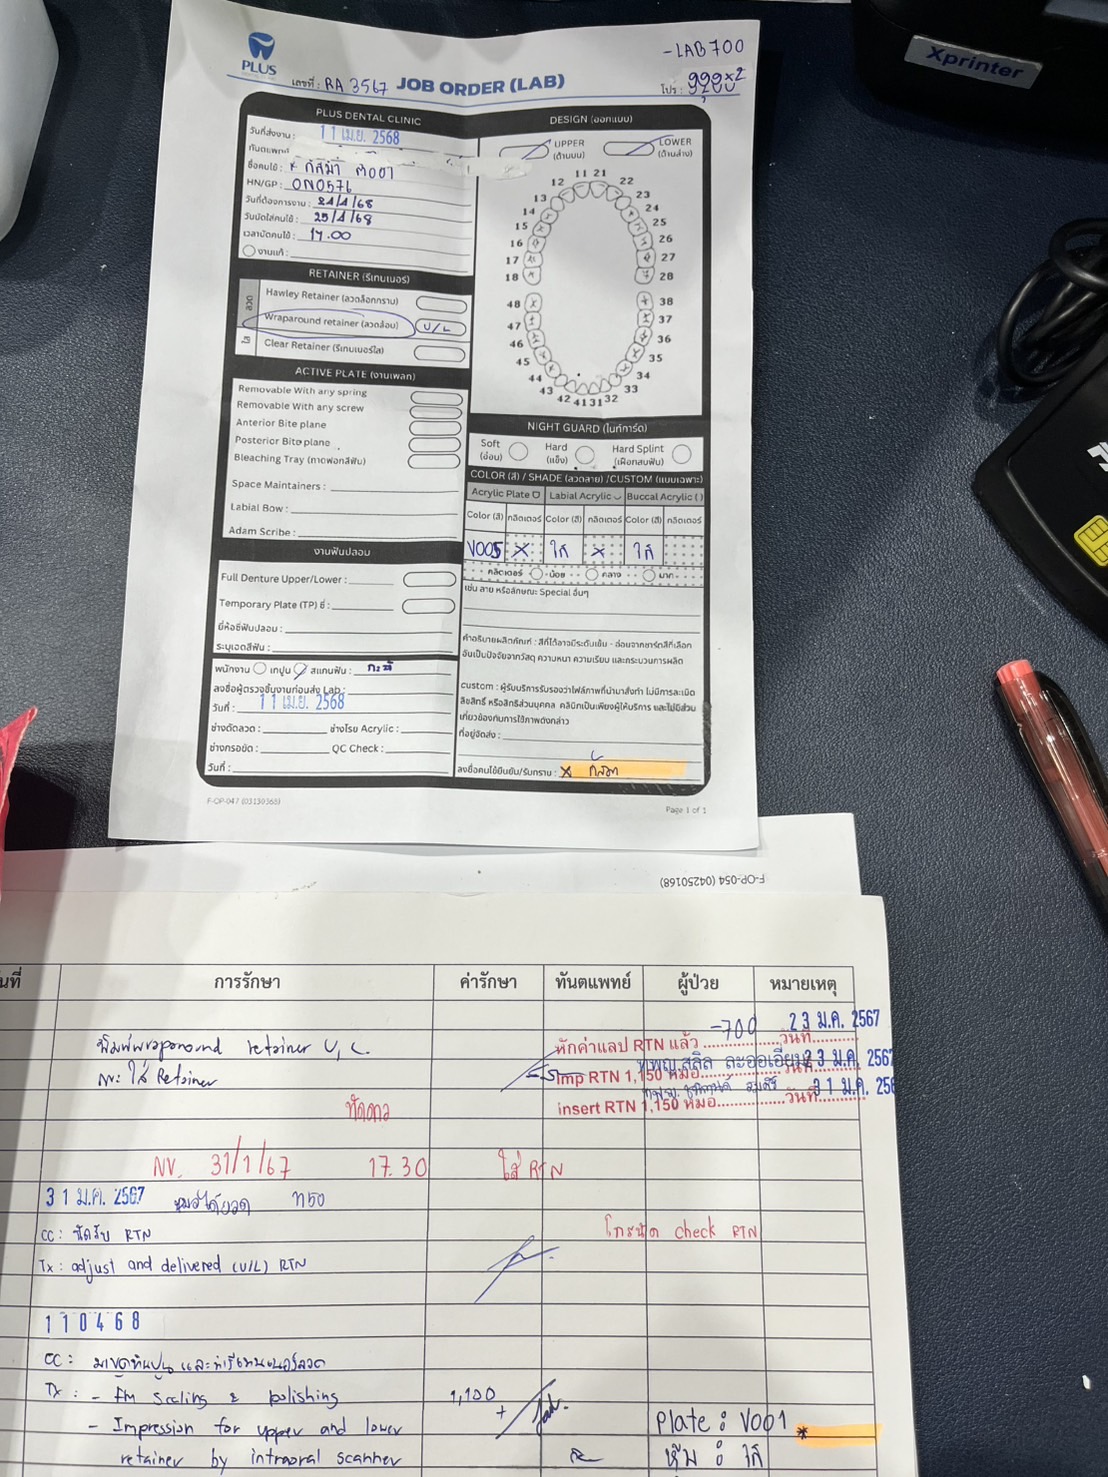 -LAB 700
PLUS
เลขที่: RA 3567 JOB ORDER (LAB)
โปร: 999x2
Xprinter
PLUS DENTAL CLINIC
วันที่ส่งงาน: 11 เม.ย. 2568
ทันตแพทย์
ชื่อคนไข้:
HN/GP: 0N0576
วันที่ต้องการงาน: 24/4/68
วันนัดใส่คนไข้: 25/4/68
เวลานัดคนไข้: 17.00
งานแก้:
RETAINER (รีเทนเนอร์)
ลวด
Hawley Retainer (ลวดล็อกกราม)
Wraparound retainer (ลวดล้อม) U/L
ใส
Clear Retainer (รีเทนเนอร์ใส)
ACTIVE PLATE (งานเพลท)
Removable With any spring
Removable With any screw
Anterior Bite plane
Posterior Bite plane
Bleaching Tray (ถาดฟอกสีฟัน)
Space Maintainers:
Labial Bow:
Adam Scribe:
งานฟันปลอม
Full Denture Upper/Lower:
Temporary Plate (TP) ซี่:
ยี่ห้อซี่ฟันปลอม:
ระบุเฉดสีฟัน:
พนักงาน เทปูน สแกนฟัน:
ลงชื่อผู้ตรวจชิ้นงานก่อนส่ง Lab:
วันที่: 11 เม.ย. 2568
ช่างดัดลวด: ช่างโรย Acrylic:
ช่างกรอขัด: QC Check:
วันที่:
DESIGN (ออกแบบ)
UPPER (ด้านบน)
LOWER (ด้านล่าง)
11 21
12 22
13 23
14 24
15 25
16 26
17 27
18 28
48 38
47 37
46 36
45 35
44 34
43 33
42 41 31 32
NIGHT GUARD (ไนท์การ์ด)
Soft (อ่อน)
Hard (แข็ง)
Hard Splint (เฝือกสบฟัน)
COLOR (สี) / SHADE (ลวดลาย) /CUSTOM (แบบเฉพาะ)
Acrylic Plate Labial Acrylic Buccal Acrylic ( )
Color (สี) กลิตเตอร์ Color (สี) กลิตเตอร์ Color (สี) กลิตเตอร์
V005 X ใส X ใส
กลิตเตอร์ น้อย กลาง มาก
เช่น ลาย หรือลักษณะ Special อื่นๆ
คำอธิบายผลิตภัณฑ์ : สีที่ได้อาจมีระดับเข้ม - อ่อนจากชาร์ตสีที่เลือก
อันเป็นปัจจัยจากวัสดุ ความหนา ความเรียบ และกระบวนการผลิต
custom : ผู้รับบริการรับรองว่าไฟล์ภาพที่นำมาสั่งทำ ไม่มีการละเมิด
ลิขสิทธิ์ หรือสิทธิส่วนบุคคล คลินิกเป็นเพียงผู้ให้บริการ และไม่มีส่วน
เกี่ยวข้องกับการใช้ภาพดังกล่าว
ที่อยู่จัดส่ง:
ลงชื่อคนไข้ยืนยัน/รับทราบ: X
F-OP-047 (03130368)
Page 1 of 1
F-OP-054 (04250168)
การรักษา ค่ารักษา ทันตแพทย์ ผู้ป่วย หมายเหตุ
-700 23 ม.ค. 2567
พิมพ์wraparound retainer U, L
หักค่าแลป RTN แล้ว วันที่
NV: ใส่ Retainer
Imp RTN 1,150 หมอ วันที่ 23 ม.ค. 256
insert RTN 1,150 หมอ วันที่ 31 ม.ค. 256
NV. 31/1/67 17.30 ใส่ RTN
31 ม.ค. 2567
โทรนัด check RTN
CC: นัดรับ RTN
Tx: adjust and delivered (U/L) RTN
110468
CC: มาขูดหินปูน และทำรีเทนเนอร์ลวด
Tx: - FM scaling & polishing 1,100
- Impression for upper and lower
retainer by intraoral scanner
Plate: V001 *
หุ้ม: ใส